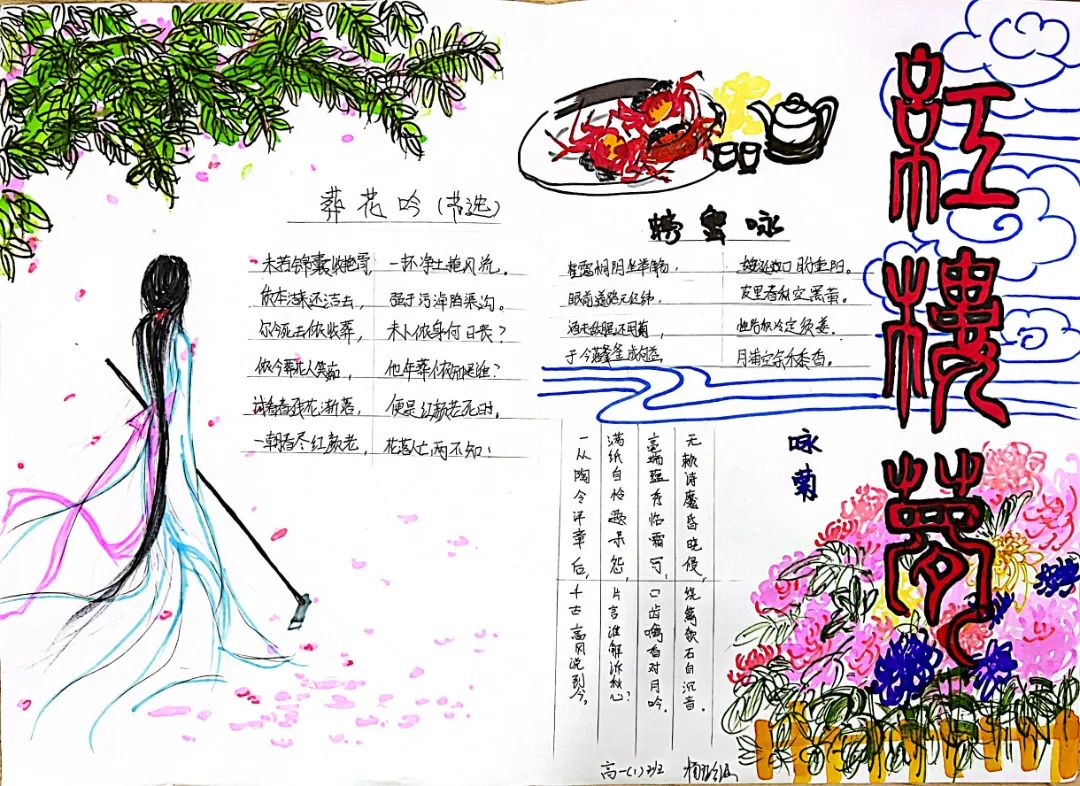 紅樓夢
葬花吟(节选)
未若锦囊收艳骨, 一抔净土掩风流。
质本洁来还洁去, 强于污淖陷渠沟。
尔今死去侬收葬, 未卜侬身何日丧?
侬今葬花人笑痴, 他年葬侬知是谁?
试看春残花渐落, 便是红颜老死时。
一朝春尽红颜老, 花落人亡两不知!
螃蟹咏
桂霭桐阴坐举觞,
眼前道路无经纬, 皮里春秋空黑黄。
酒未敌腥还用菊, 性防积冷定须姜。
于今落釜成何益, 月浦空余禾黍香。
咏菊
无赖诗魔昏晓侵, 绕篱欹石自沉音。
毫端蕴秀临霜写, 口齿噙香对月吟。
满纸自怜题素怨, 片言谁解诉秋心?
一从陶令评章后, 千古高风说到今。
高一(1)班